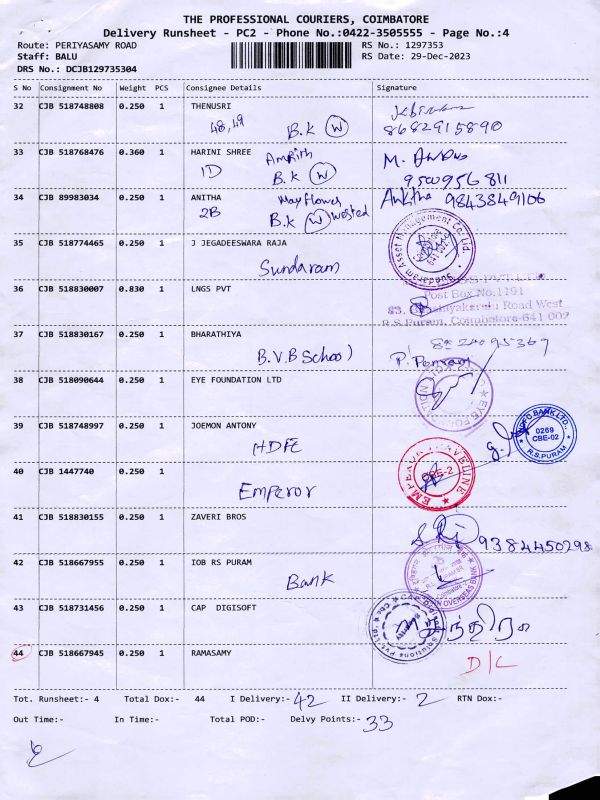 THE PROFESSIONAL COURIERS, COIMBATORE
Delivery Runsheet - PC2 - Phone No.:0422-3505555 - Page No.:4
Route: PERIYASAMY ROAD RS No.: 1297353
Staff: BALU RS Date: 29-Dec-2023
DRS No.: DCJB129735304
S No Consignment No Weight PCS Consignee Details Signature
32 CJB 518748808 0.250 1 THENUSRI
48,49 B.K W 8682915890
33 CJB 518768476 0.360 1 HARINI SHREE Amrith M.
1D B.K W 9500956811
34 CJB 89983034 0.250 1 ANITHA Mayflower Anitha 9843849106
2B B.K W Wested
35 CJB 518774465 0.250 1 J JEGADEESWARA RAJA
Sundaram Sundaram Asset Management Co. Ltd.
36 CJB 518830007 0.830 1 LNGS PVT
Post Box No:1191
Road West
R.S.Puram, Coimbatore-641 002
37 CJB 518830167 0.250 1 BHARATHIYA
B.V.B School P.
38 CJB 518090644 0.250 1 EYE FOUNDATION LTD
EYE FOUNDATION LTD
39 CJB 518748997 0.250 1 JOEMON ANTONY
HDFC HDFC BANK LTD. 0269 CBE-02 R.S.PURAM
40 CJB 1447740 0.250 1
Emperor EMPEROR TRAVELINE CBE-2
41 CJB 518830155 0.250 1 ZAVERI BROS
9384450298
42 CJB 518667955 0.250 1 IOB RS PURAM
Bank INDIAN OVERSEAS BANK
43 CJB 518731456 0.250 1 CAP DIGISOFT
Solutions Pvt. Ltd.
44 CJB 518667945 0.250 1 RAMASAMY
D/L
Tot. Runsheet:- 4 Total Dox:- 44 I Delivery:- 42 II Delivery:- 2 RTN Dox:-
Out Time:- In Time:- Total POD:- Delvy Points:- 33